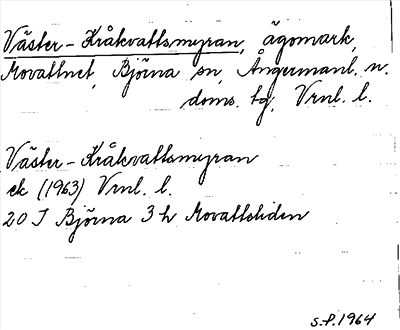 Väster-Kråkvattsmyran, ägomark,
Movattnet, Björna sn, Ångermanl. n.
doms. tg, Vrnl. l.
Väster-Kråkvattsmyran
ek (1963) Vrnl. l.
20 I Björna 3 h Movattsliden
S.P. 1964